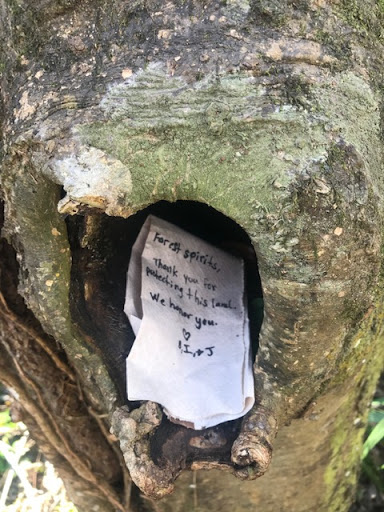 Forest spirits,
Thank you for
protecting this land.
We honor you.
♡